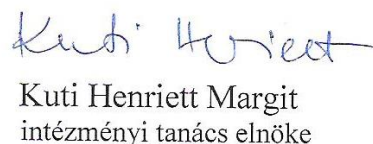 Kuti Henriett
Kuti Henriett Margit
intézményi tanács elnöke